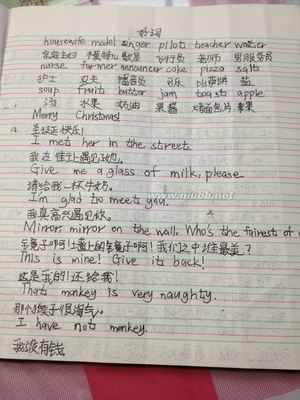 好词
housewife model singer pilot teacher waiter
家庭主妇 模特儿 歌星 飞行员 老师 男服务员
nurse farmer announcer coke pizza salt
护士 农夫 播音员 可乐 比萨饼 盐
soup fruit butter jam toast apple
汤 水果 奶油 果酱 烤面包片 苹果
Merry Christmas!
圣诞快乐!
I met her in the street.
我在街上遇见了她。
Give me a glass of milk, please.
请给我一杯牛奶。
I'm glad to meet you.
我是高兴遇见你。
Mirror mirror on the wall. Who's the fairest of
镜子啊!墙上的镜子啊!我们之中谁最美?
This is mine! Give it back!
这是我的!还给我!
That monkey is very naughty.
那个猴子很淘气。
I have not monkey.
我没有钱
www.niubb.net